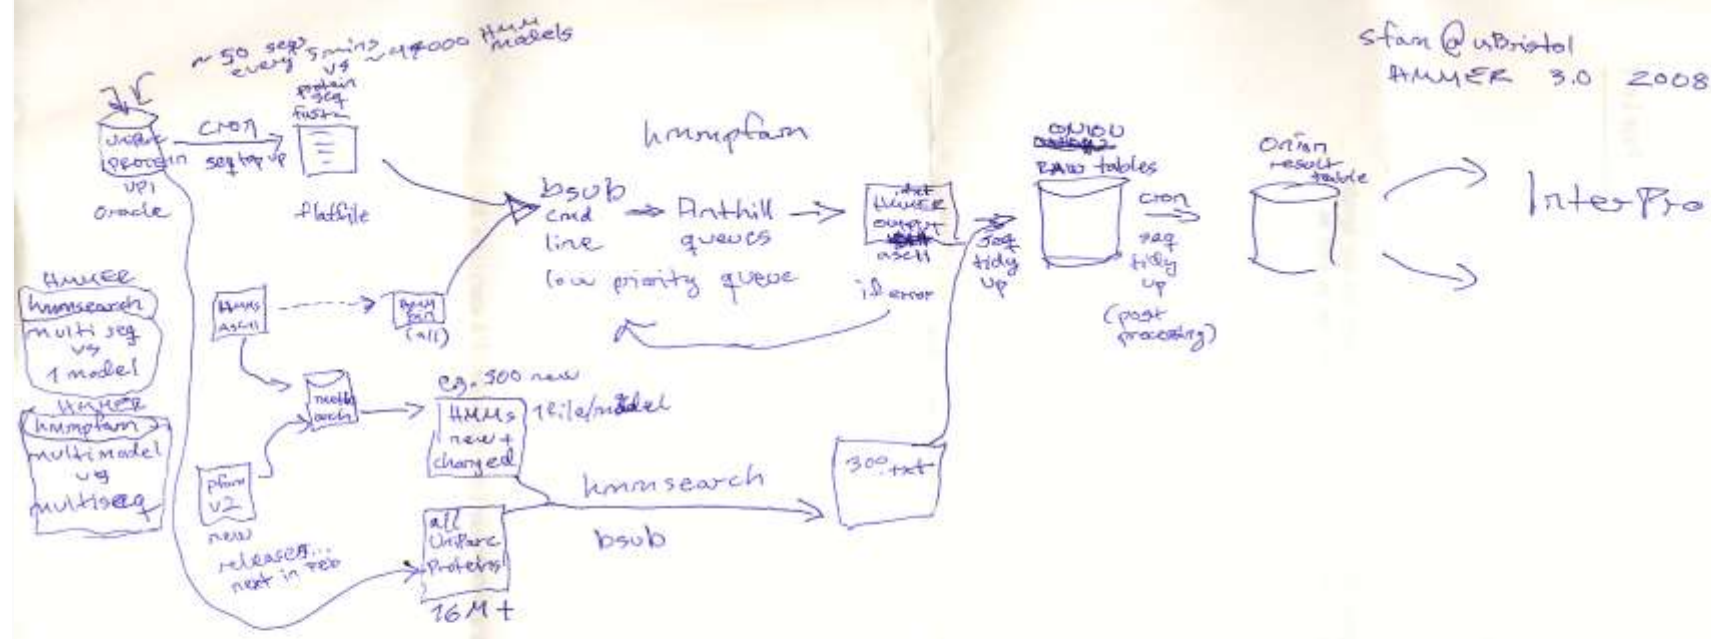 ~ 50 seqs
every 5 mins
vs
~ 4000 HMM
models
sfam @ uBristol
HMMER 3.0 2008
protein
seq
fasta
cron
seq top up
protein
UPI
Oracle
flatfile
hmmpfam
bsub
cmd
line
Anthill
queues
low priority queue
.txt
HMMER
output
ascii
if error
seq
tidy
up
ONION
RAW tables
cron
seq
tidy
up
(post
processing)
Onion
result
table
InterPro
HMMER
hmmsearch
multi seq
vs
1 model
HMMER
hmmpfam
multimodel
vs
multiseq
HMMs
ASCII
(all)
e.g. 300 new
HMMs
new +
changed
1 file/model
pfam
v2
new
releases...
next in Feb
all
UniParc
Proteins
16M +
hmmsearch
bsub
300 .txt